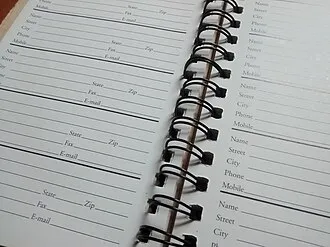 State Zip
Fax
E-mail
Name
State Zip
Fax
E-mail
Name
State Zip
Fax
E-mail
State Zip
Fax
E-mail
State Zip
Fax
E-mail
Street
City
Phone
Mobile
Name
Street
City
Phone
Mobile
Name
Street
City
Phone
Mobile
Name
Street
City
Phone
Mobile
Name
Street
City